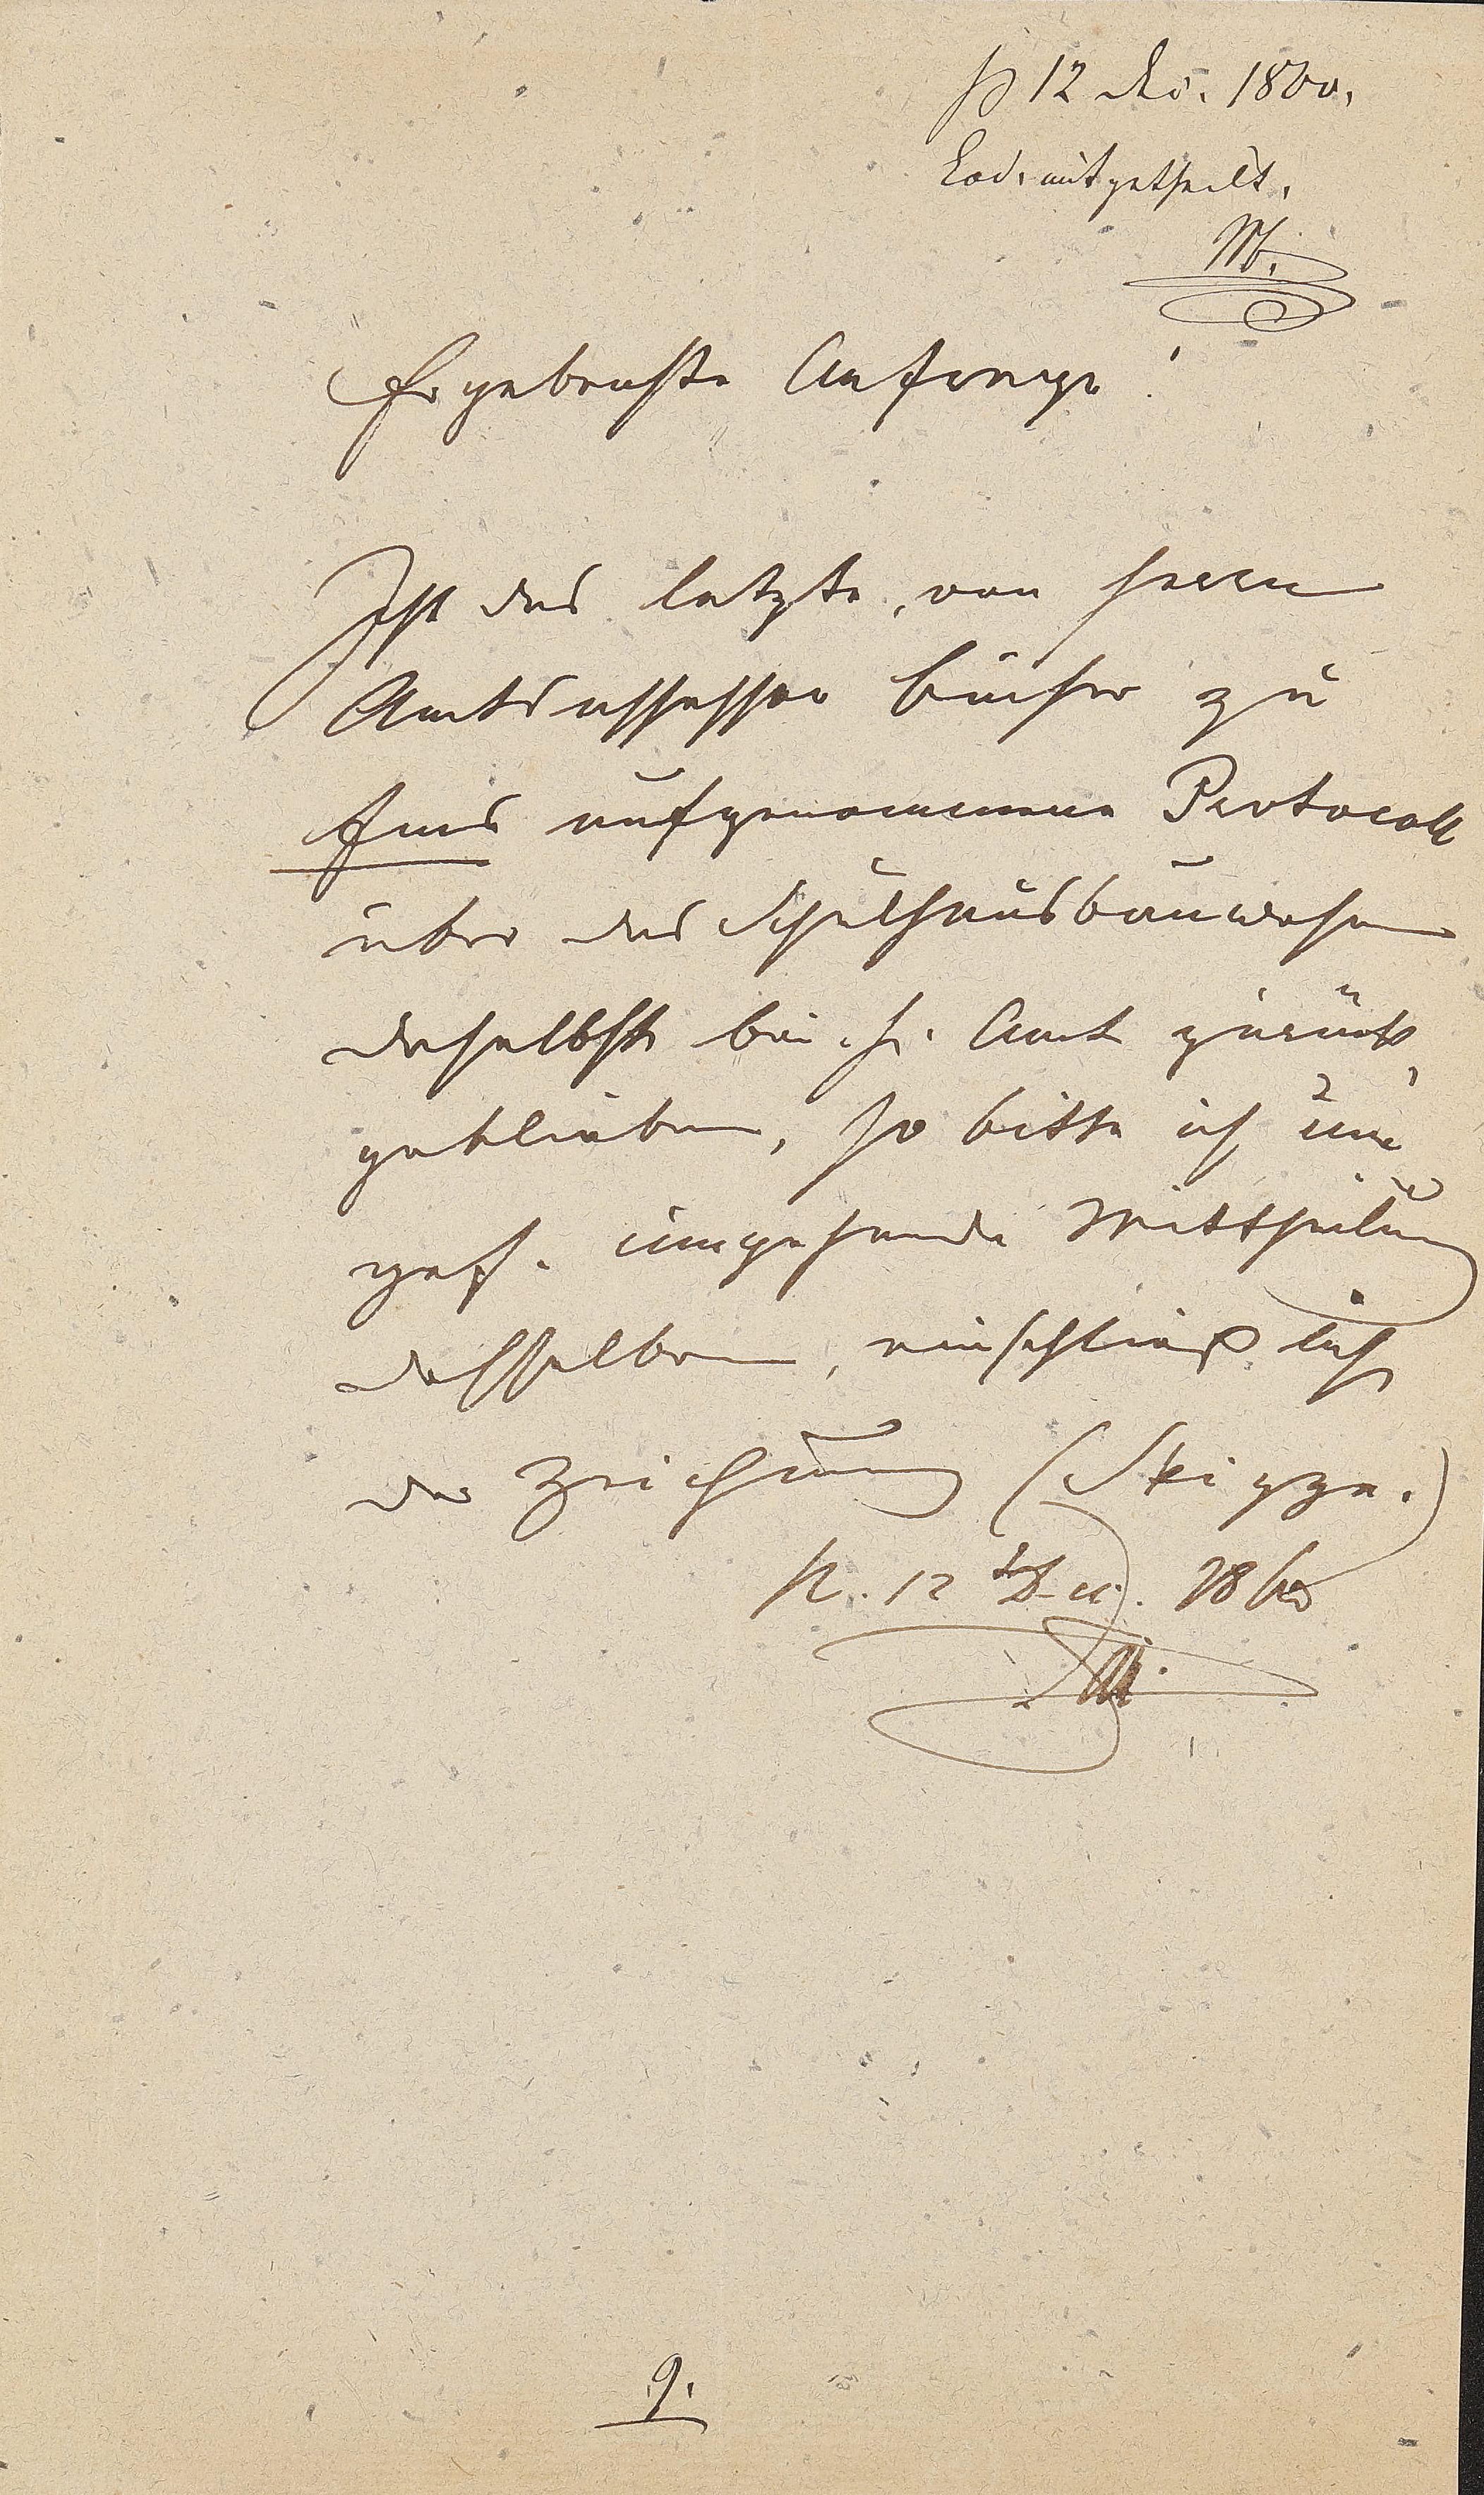 12 Dec. 1860.
Eod. mitgetheilt.
M.
Ergebenste Anfrage!
Ist das letzte, von Herrn
Amtsassessor Bücher zu
aufgenommene Protocoll
über das Schulhausbauwesen
daselbst bei H. Amt zurück
geblieben, so bitte ich um
gef. umgehende Mittheilung
desselben, einschließlich
der Zeichnung (Skizze.)
12 Dec. 1860
M.
9.